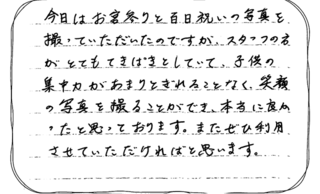 今日はお宮参りと百日祝いの写真を
撮っていただいたのですが、スタッフの方
がとてもてきぱきとしていて、子供の
集中力があまりとぎれることなく、笑顔
の写真を撮ることができ、本当に良か
ったと思っております。またぜひ利用
させていただければと思います。